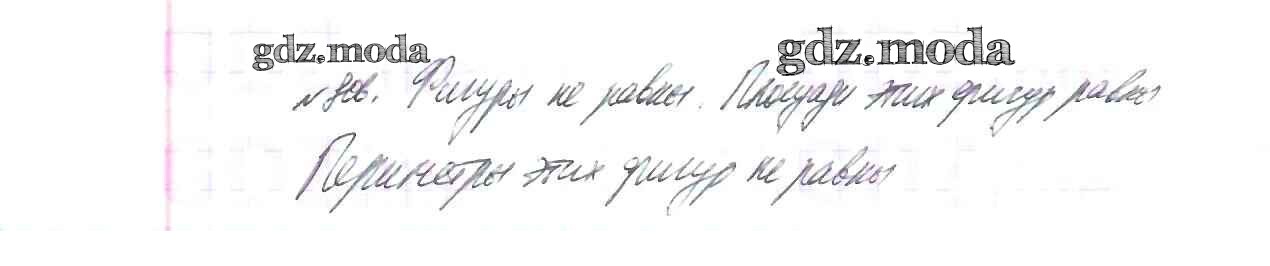 gdz.moda gdz.moda
Фигуры не равны. Площади этих фигур равны
Периметры этих фигур не равны